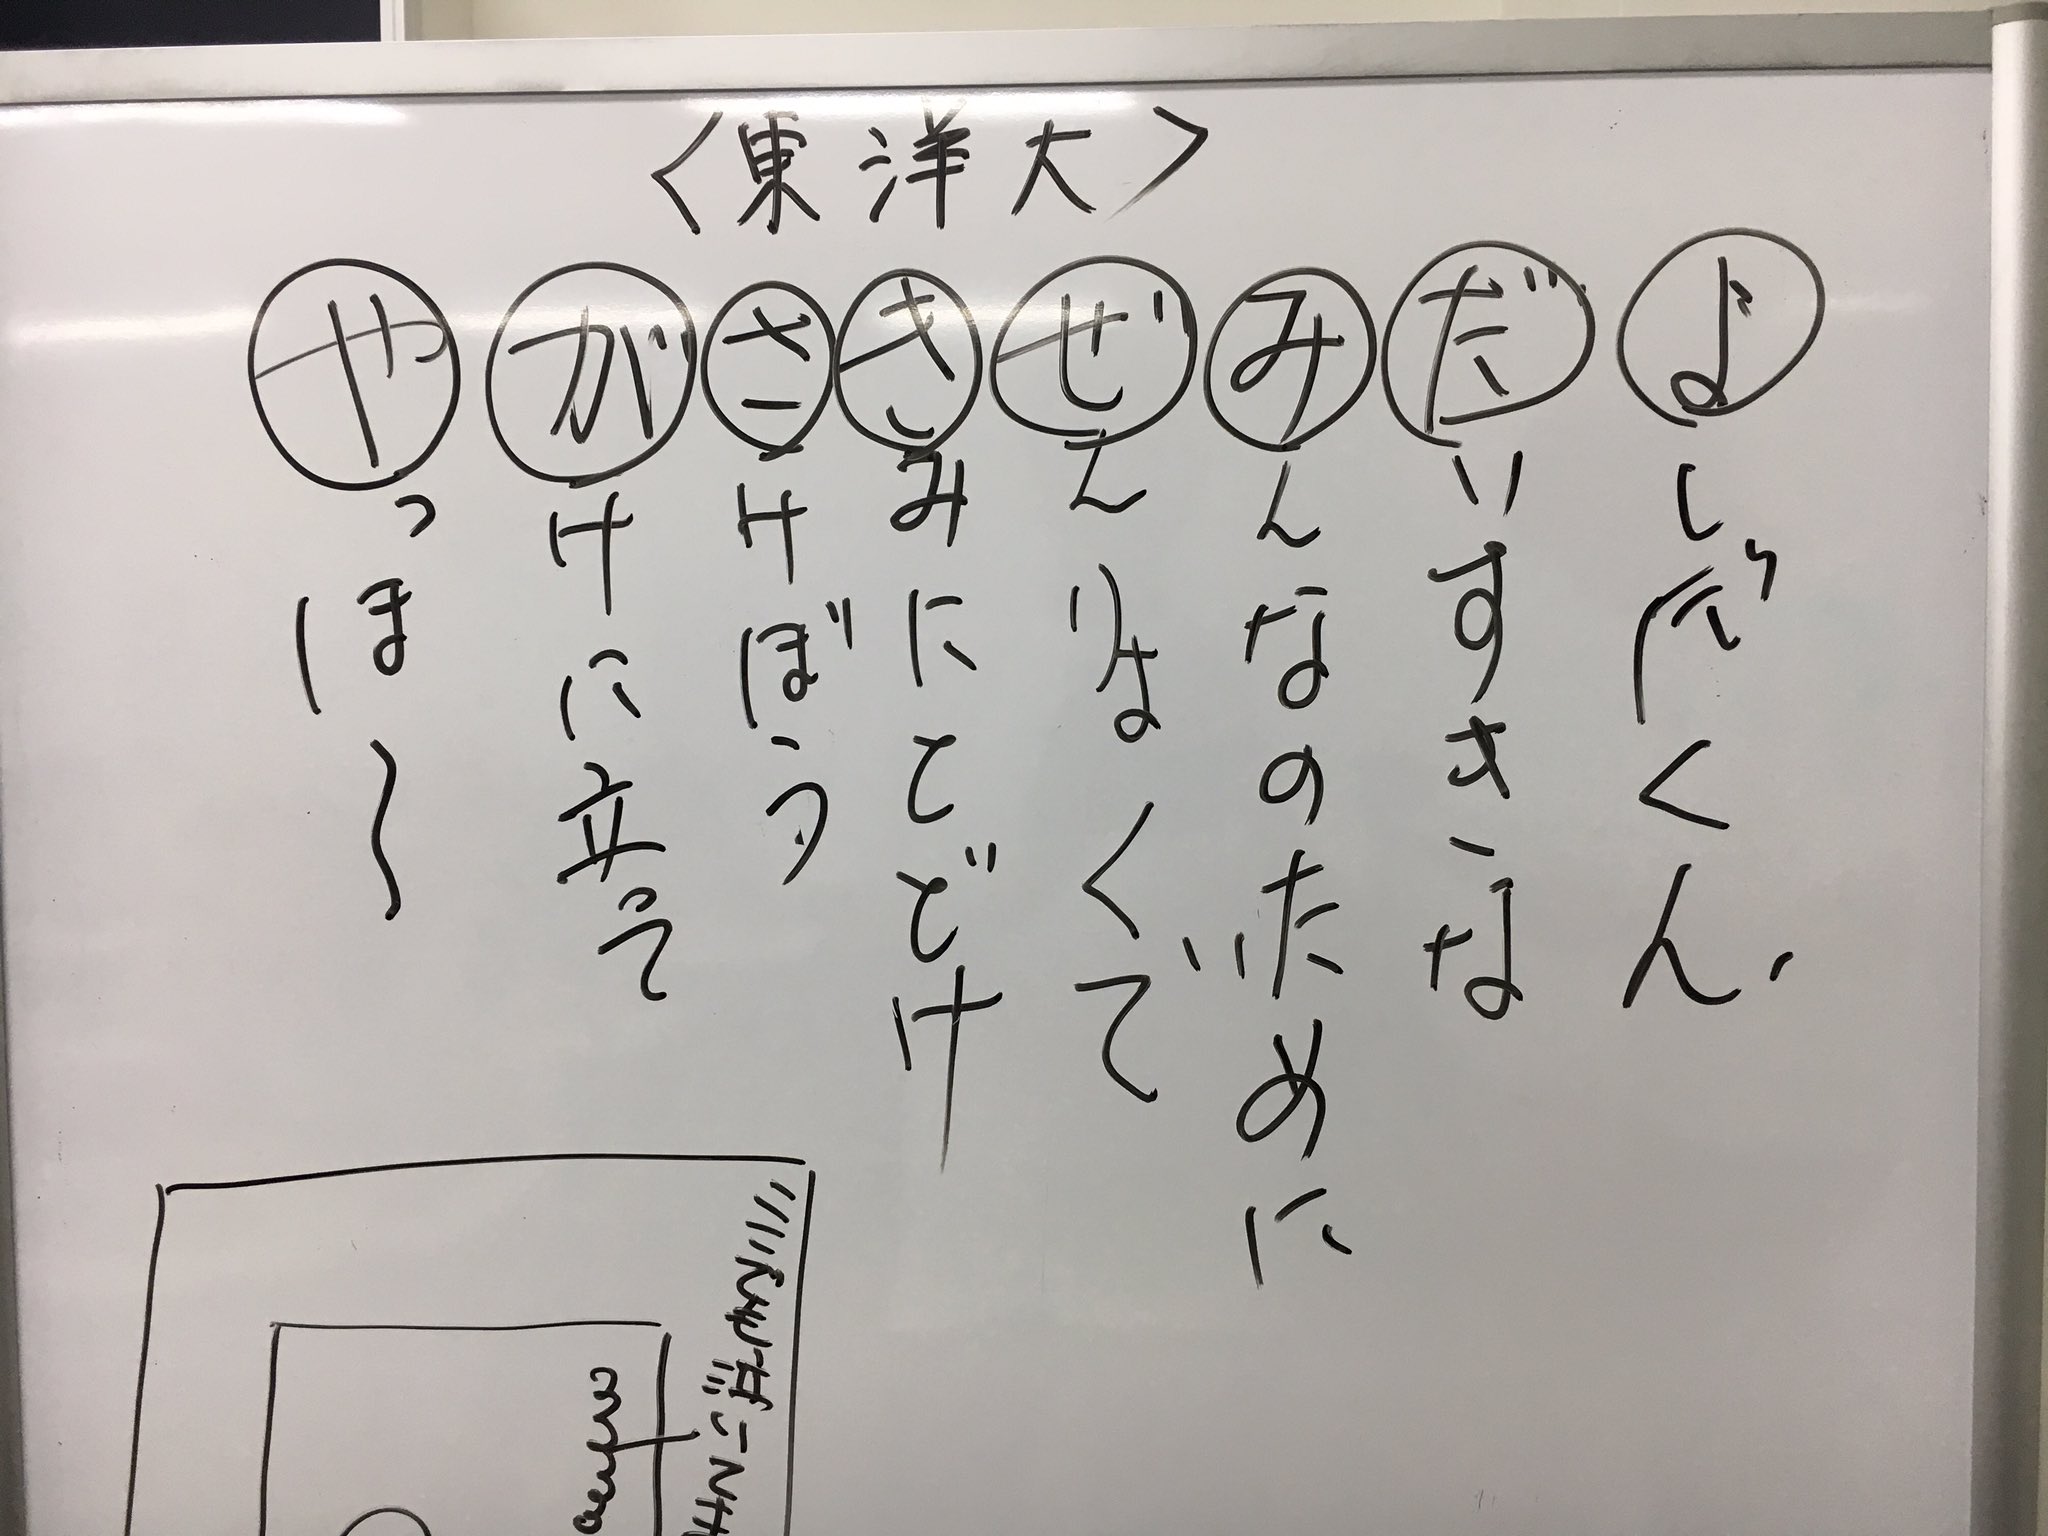 〈東洋大〉
よしべくん、
だいすきな
みんなのために
ぜんりょくで
きみにとどけ
さけぼう
がけに立って
やっほ〜